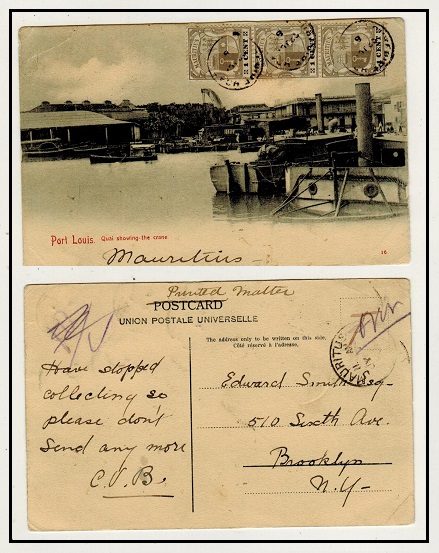 MAURITIUS
1 CENT
1 CENT
1 CENT
Port Louis. Quai showing the crane
Mauritius
Printed Matter
POSTCARD
UNION POSTALE UNIVERSELLE
The address only to be written on this side.
Côté réservé à l'adresse.
MAURITIUS
Have stopped
collecting so
please don't
send any more
C.V.B.
Edward Smith Esq-
510 Sixth Ave.
Brooklyn
N.Y-